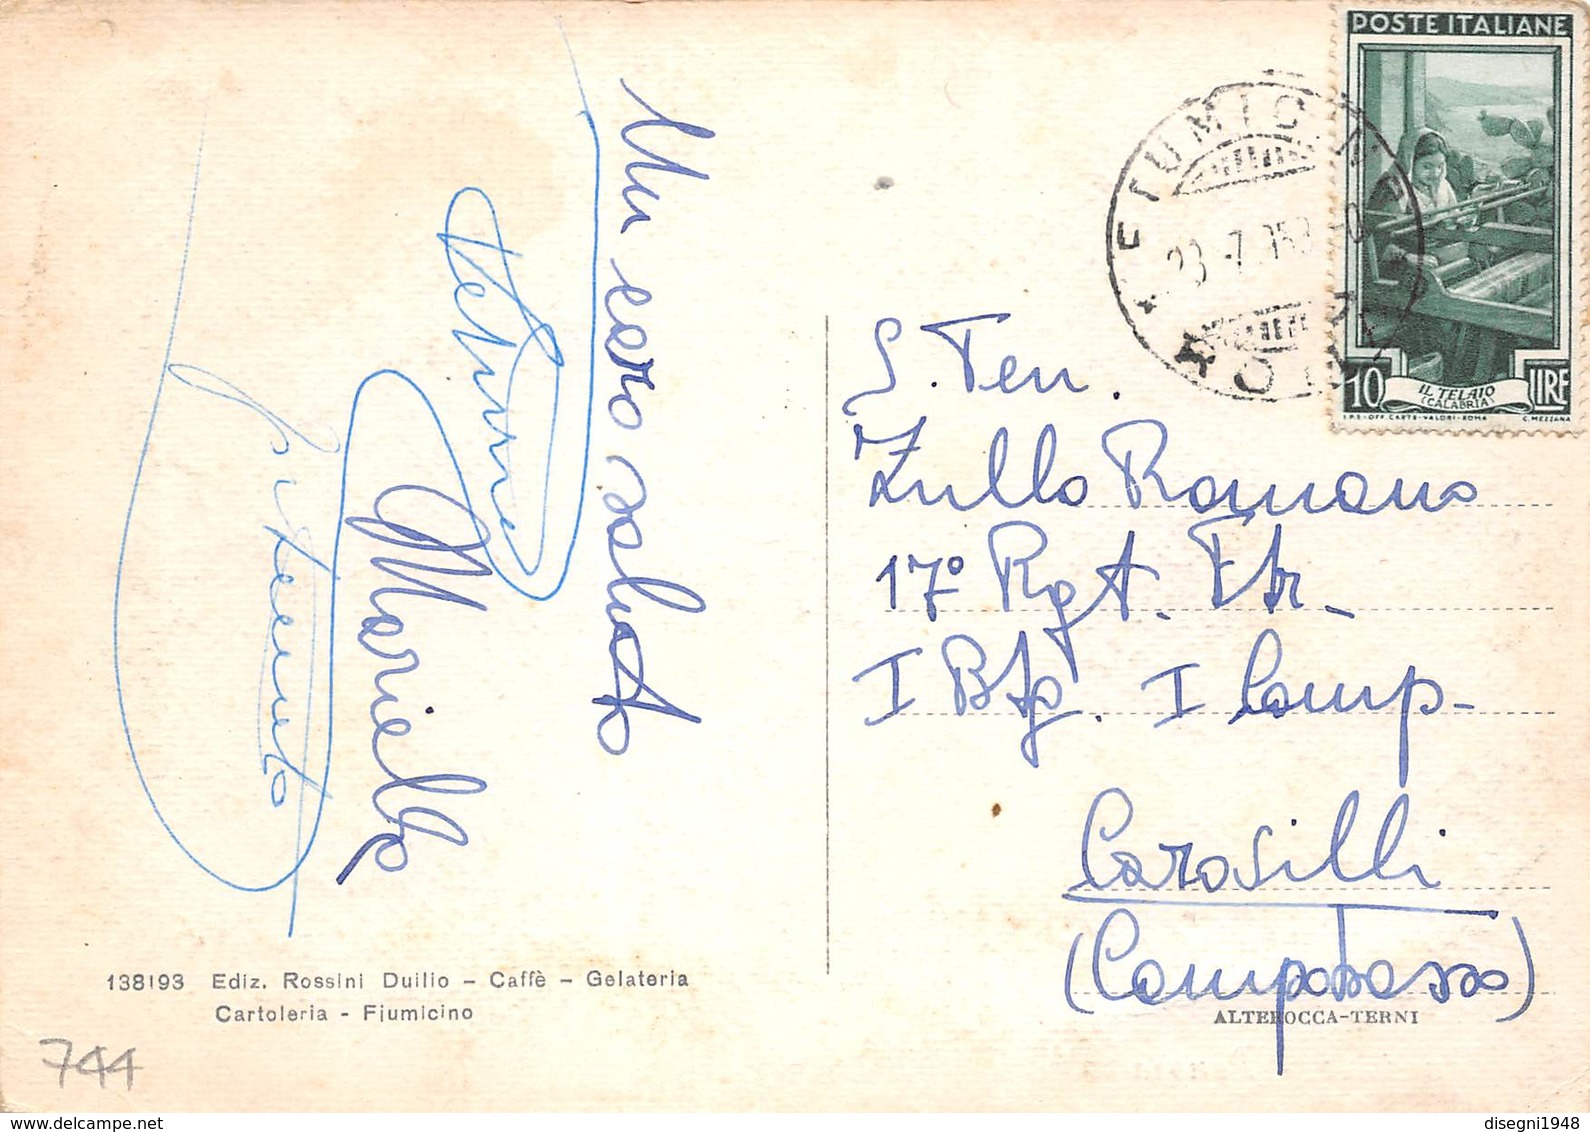 Un caro saluto
Mariella
S. Ten.
Zullo Romano
17° Rgt. Ftr.
I Btg. I Comp.
Carosilli
(Campobasso)
POSTE ITALIANE
10 LIRE
IL TELAIO
(CALABRIA)
I.P.S-OFF. CARTE-VALORI-ROMA C. MEZZANA
FIUMICINO
ROMA
138193 Ediz. Rossini Duilio - Caffè - Gelateria
Cartoleria - Fiumicino
ALTEROCCA-TERNI
744
disegni1948